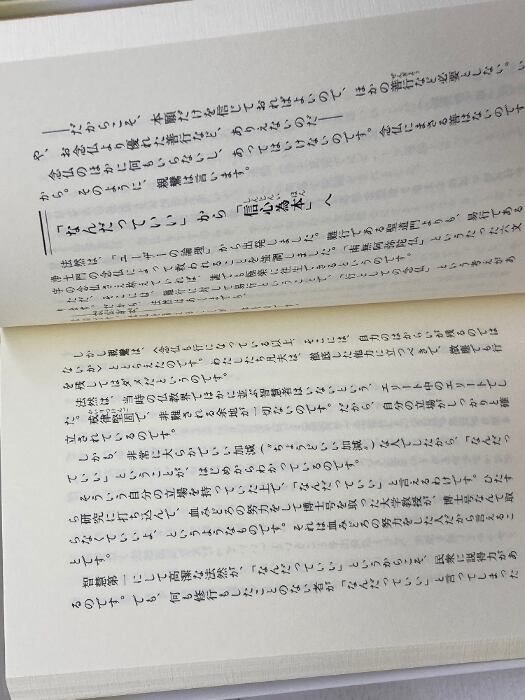 ――だからこそ、本願だけを信じておればよいので、ほかの善行など必要としない。い
や、お念仏より優れた善行など、ありえないのだ――
念仏のほかに何もいらないし、あってはいけないのです。念仏にまさる善はないのです
から。そのように、親鸞は言います。
「なんだっていい」から「信心為本」へ
法然は、「ユーザーの論理」から出発しました。難行である聖道門よりも、易行である
浄土門の念仏によって救われることを強調しました。「南無阿弥陀仏」というたった六文
字の念仏さえ称えていれば、誰でも極楽に往生できるというのです。
ただ、そこには〈難行に対して易行〉ということで、「行としての念仏」という考えがあ
しかし親鸞は、〈念仏も行になっている以上、そこには、自力のはからいが残るのでは
ないか〉ととらえたのです。わたしたち凡夫は、徹底した他力に立つべきで、微塵でも行
を残してはダメだというのです。
法然は、当時の仏教界でほかに並ぶ智慧者はいないという、エリート中のエリートでし
た。戒律堅固で、非難される余地が一切ないのです。だから、自分の立場がしっかりと確
立されているのです。
しかも、非常に大らかでいい加減（〝ちょうどいい加減〟）な人でしたから、「なんだっ
ていい」ということが、はじめからわかっているのです。
そういう自分の立場を持っていた上で、「なんだっていい」と言えるわけです。ひたす
ら研究に打ち込んで、血みどろの努力をして博士号を取った大学教授が、〈博士号なんて取
らなくていいよ〉というようなものです。それは血みどろの努力をした人だから言えるこ
とです。
智慧第一にして高潔な法然が、「なんだっていい」というからこそ、民衆に説得力があ
るのです。でも、何も修行もしたことのない者が「なんだっていい」と言ってしまった